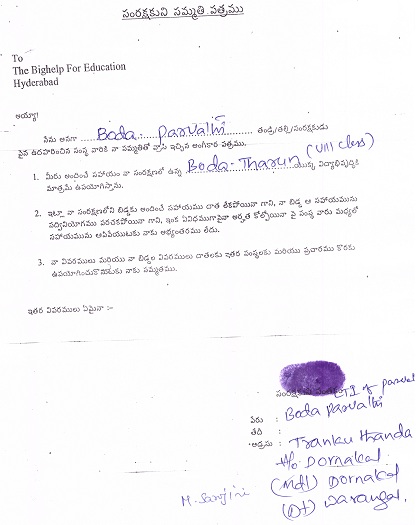 సంరక్షకుని సమ్మతి పత్రము
To
The Bighelp For Education
Hyderabad
అయ్యా!
నేను అనగా Boda. Parvathi తండ్రి/తల్లి/సంరక్షకుడు
పైన ఉదహరించిన సంస్థ వారికి నా సమ్మతితో వ్రాసి ఇచ్చిన అంగీకార పత్రము.
1. మీరు అందించే సహాయం నా సంరక్షణలో ఉన్న Boda-Tharun (VIII class) యొక్క విద్యాభివృద్ధికి
మాత్రమే ఉపయోగిస్తాను.
2. ఇట్లా నా సంరక్షణలోని బిడ్డకు అందించే సహాయము దాత లేకపోయినా గాని, నా బిడ్డ ఆ సహాయమును
సద్వినియోగము పరచకపోయినా గాని, ఇంక ఏవిధముగానైనా అర్హత కోల్పోయినా పై సంస్థ వారు మధ్యలో
సహాయమును ఆపివేయుటకు నాకు అభ్యంతరము లేదు.
3. నా వివరములు మరియు నా బిడ్డల వివరములు దాతలకు ఇతర సంస్థలకు మరియు ప్రచారము కొరకు
ఉపయోగించుకొనుటకు నాకు సమ్మతము.
ఇతర వివరములు ఏమైనా :-
LTI of parvat
పేరు : Boda Parvathi
తేది :
అడ్రసు : Tranku thanda
H/o Dornakal
(Mdl) Dornakal
(Dt) Warangal.